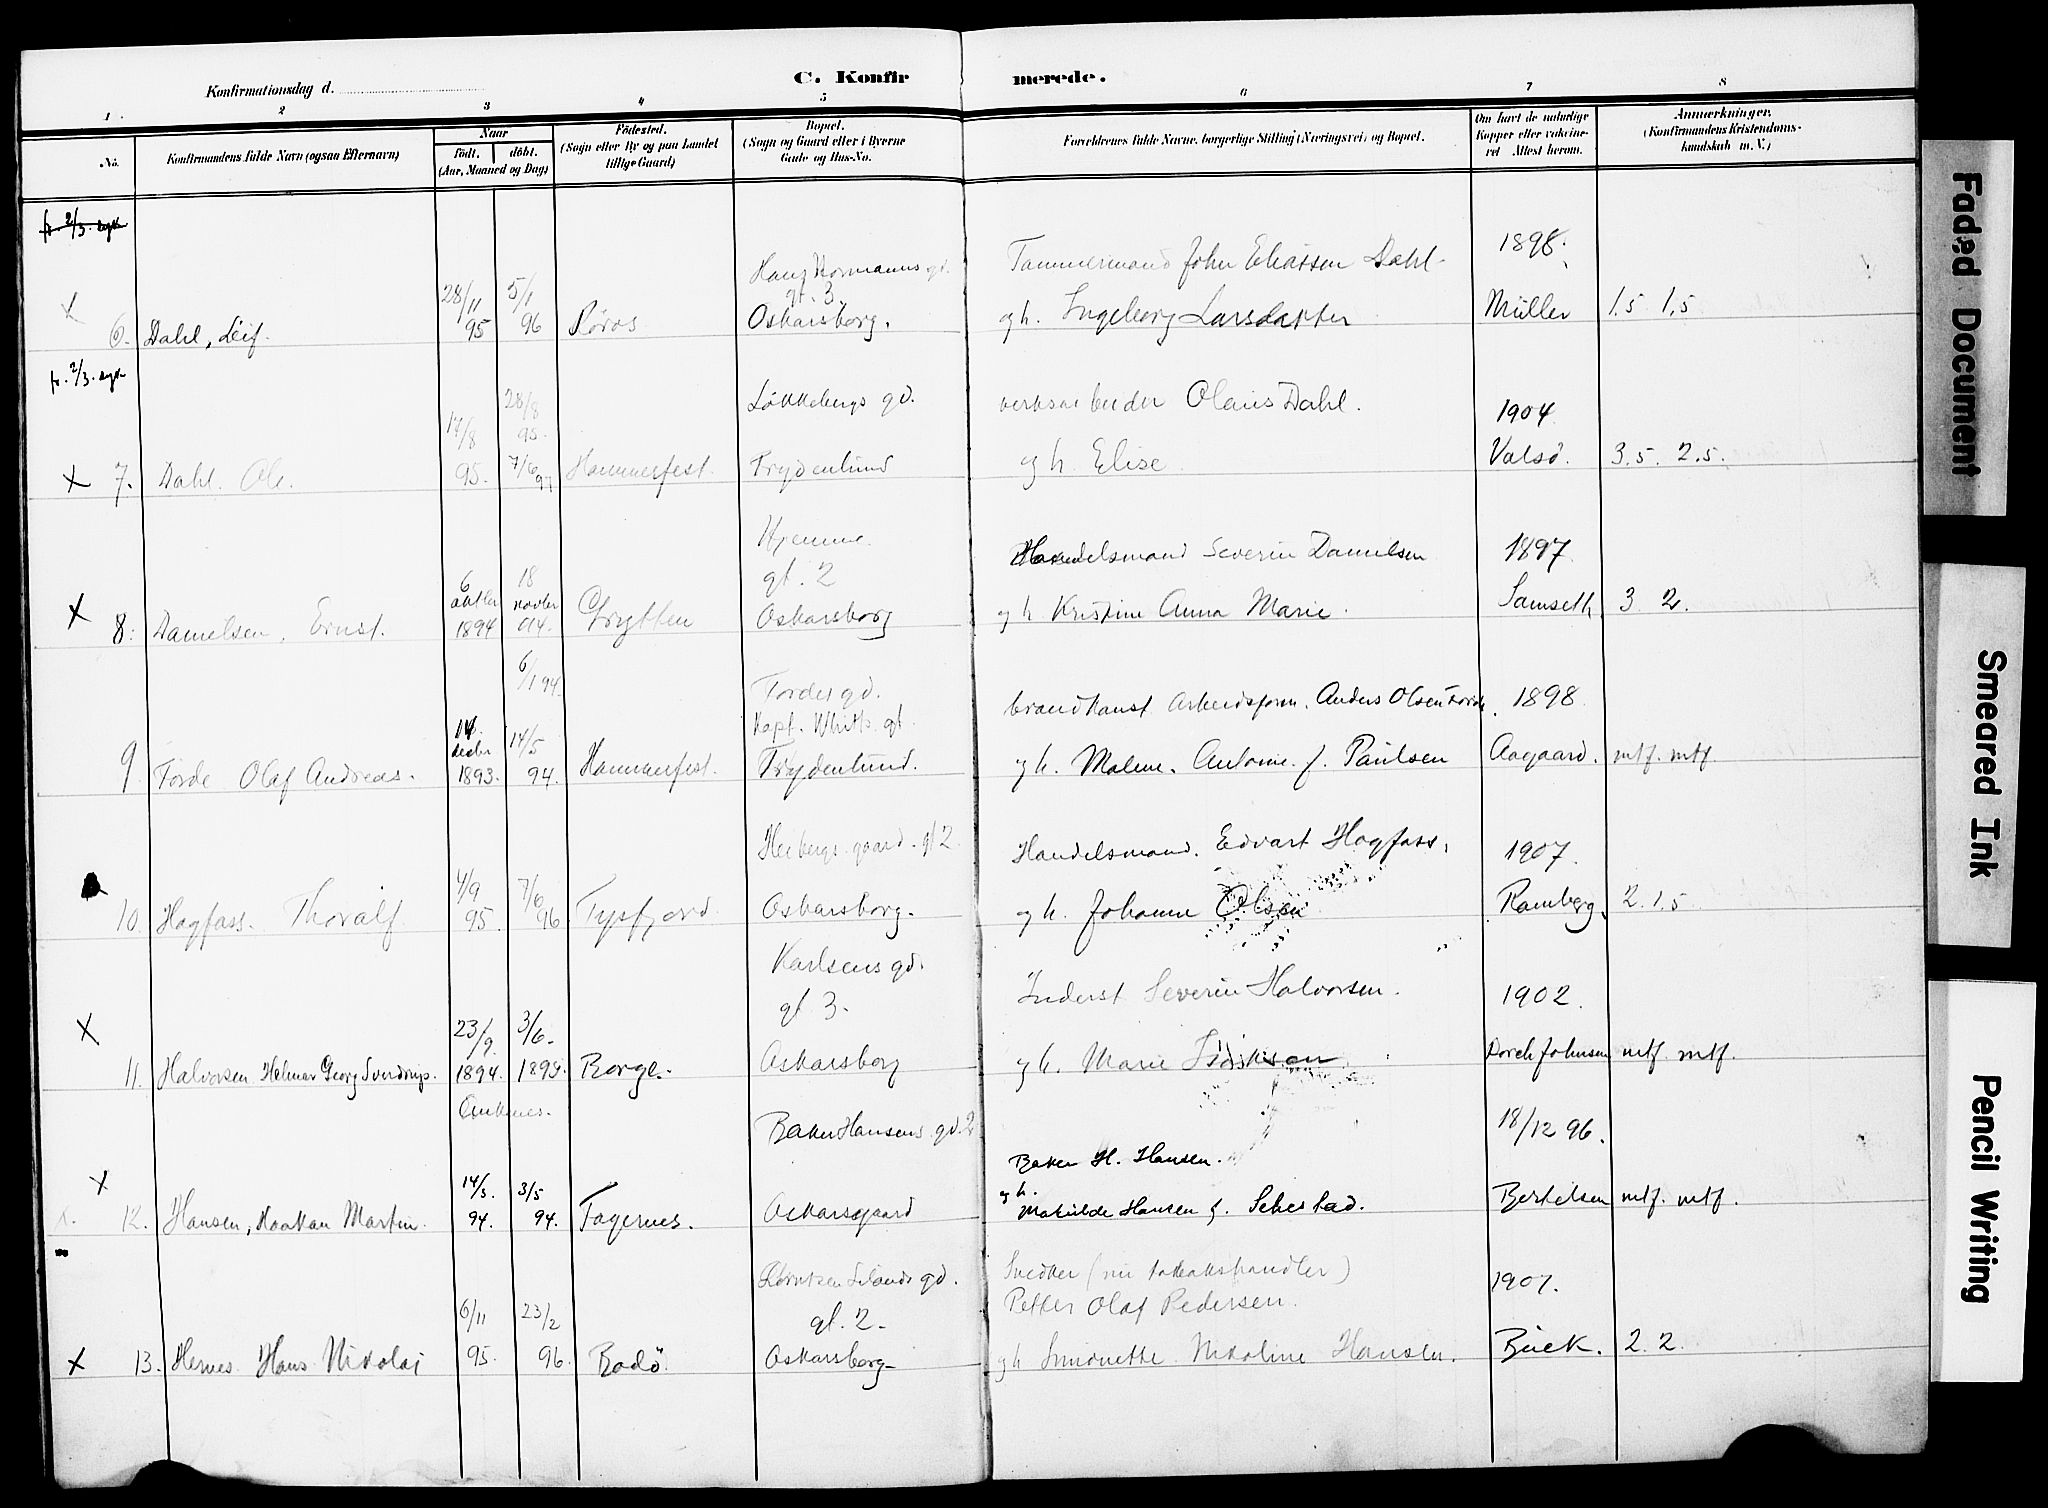 C. Konfirmerede.
Konfirmationsdag d.
1 2 3 4 5 6 7 8
No.
Konfirmandens fulde Navn (ogsaa Efternavn)
Naar
födt. döbt.
(Aar, Maaned og Dag)
Födested.
(Sogn eller By og paa Landet
tillige Gaard)
Bopæl.
(Sogn og Gaard eller i Byerne
Gade og Hus-No.
Forældrenes fulde Navne, borgerlige Stilling (Næringsvei) og Bopæl.
Om havt de naturlige
Kopper eller vaccine-
ret Attest herom.
Anmærkninger.
(Konfirmandens Kristendoms-
kundskab m. V.)
Hans Normanns gd.
gt. 3.
Tømmermand John Eliassen Dahl
1898.
6. Dahl, Leif. 28/11 95 5/1 96 Röros Oskarsborg. gh. Ingeborg Larsdatter Müller 1,5 1,5
fr. 2/3.
Lökkebergs gd. Olaus Dahl. 1904
28/8 95.
7. Dahl. Ole. 17/8 95. 7/6 97 Hammerfest. Frydenlund gh. Elise Valsö. 3.5. 2.5.
Hjemme.
gt. 2
Handelsmand Severin Danielsen 1897
8. Danielsen, Ernst. 6 oktbr 1894 18 novbr 94. Trytten Oskarsborg gh Kristine Anna Marie. Samseth 3 2.
6/1 94.
Fordes gd.
Kapt. gt.
Arbeidsform. Anders Olsen Forde 1898
9. Forde Olaf Andreas. 14 decbr 1893. 14/5 94. Hammerfest. Frydenlund. gh. Malene. Antonie. f. Paulsen Aagaard. mtf. mtf.
Heibergs gaard. gt 2
Handelsmand. Edvart Hagfass, 1907.
10. Hagfass. Thoralf 4/9 95 7/6 96 Tysfjord Oskarsborg. gh. Johanne Olsen Ramberg. 2. 1,5
Karlsens gd.
gt. 3.
Inderst Severin Halvorsen. 1902.
11. Halvorsen Helmer Georg Sverdrup. 23/9 1894. 3/6 1895. Borge. Oskarsborg gh. Marie Dorch Johnsen mtf. mtf.
Ankenes.
Baker Hansens gd. 2
Baker H. Hansen. 18/12 96.
12. Hansen, Haakon Martin. 14/3. 94. 3/5 94. Fagernes. Oskarsgaard gh. Mathilde Hansen f. Sebestad. Bertelsen mtf. mtf.
gd.
gt. 2.
Snedker (nu tobakshandler)
Petter Olaf Pedersen. 1907.
13. Hernes Hans Nikolai 6/11 95. 23/2 96. Bodö. Oskarsborg gh Simonette Nikoline Hansen. Buck. 2. 2.
Faded Document
Smeared Ink
Pencil Writing